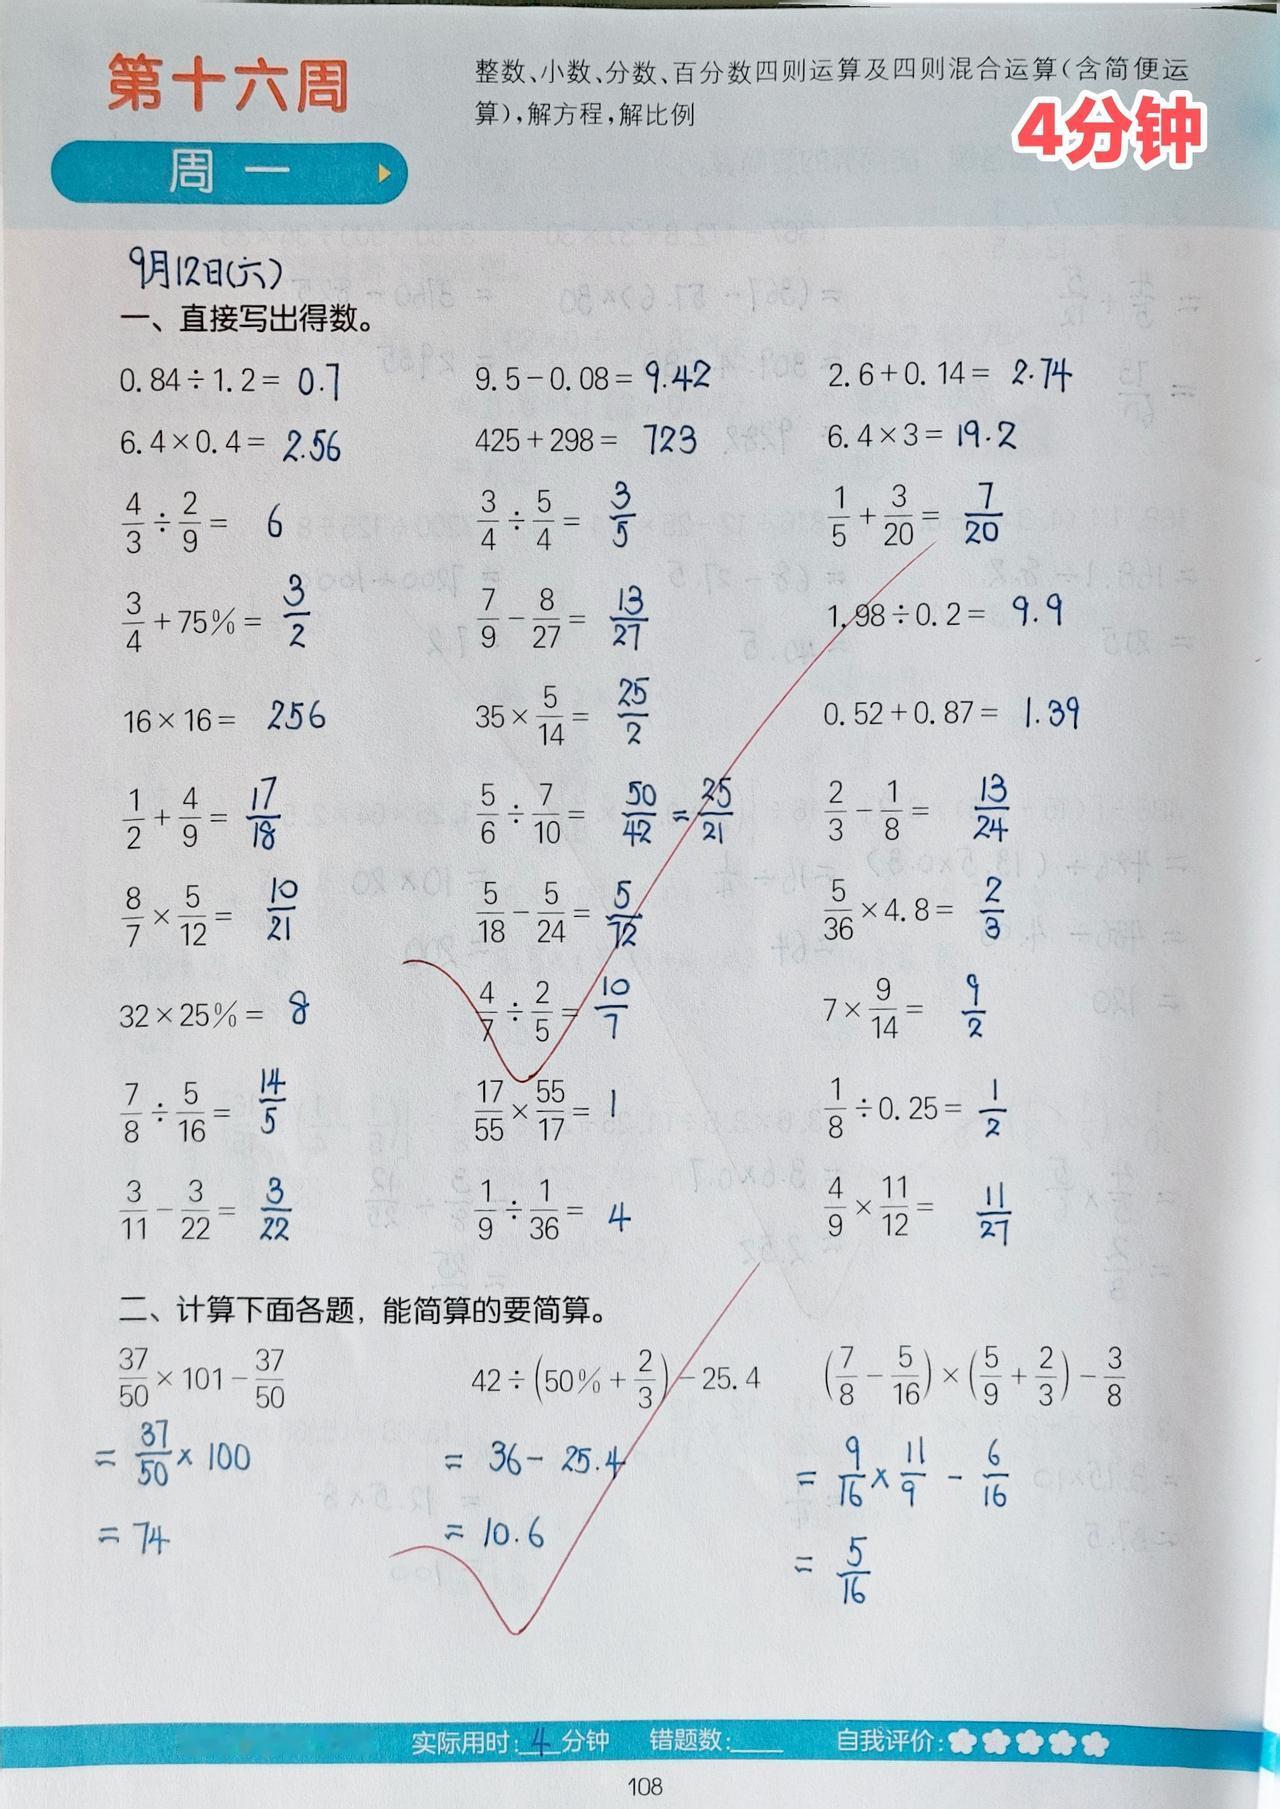 第十六周
整数、小数、分数、百分数四则运算及四则混合运算(含简便运
算),解方程,解比例
4分钟
周一
9月12日(六)
一、直接写出得数。
0.84÷1.2= 0.7 9.5-0.08= 9.42 2.6+0.14= 2.74
6.4×0.4= 2.56 425+298= 723 6.4×3= 19.2
4/3÷2/9= 6 3/4÷5/4= 3/5 1/5+3/20= 7/20
3/4+75%= 3/2 7/9-8/27= 13/27 1.98÷0.2= 9.9
16×16= 256 35×5/14= 25/2 0.52+0.87= 1.39
1/2+4/9= 17/18 5/6÷7/10= 50/42=25/21 2/3-1/8= 13/24
8/7×5/12= 10/21 5/18-5/24= 5/72 5/36×4.8= 2/3
32×25%= 8 4/7÷2/5= 10/7 7×9/14= 9/2
7/8÷5/16= 14/5 17/55×55/17= 1 1/8÷0.25= 1/2
3/11-3/22= 3/22 1/9÷1/36= 4 4/9×11/12= 11/27
二、计算下面各题，能简算的要简算。
37/50×101-37/50 42÷(50%+2/3)-25.4 (7/8-5/16)×(5/9+2/3)-3/8
=37/50×100 =36-25.4 =9/16×11/9-6/16
=74 =10.6 =5/16
实际用时:4分钟 错题数:____ 自我评价:
108